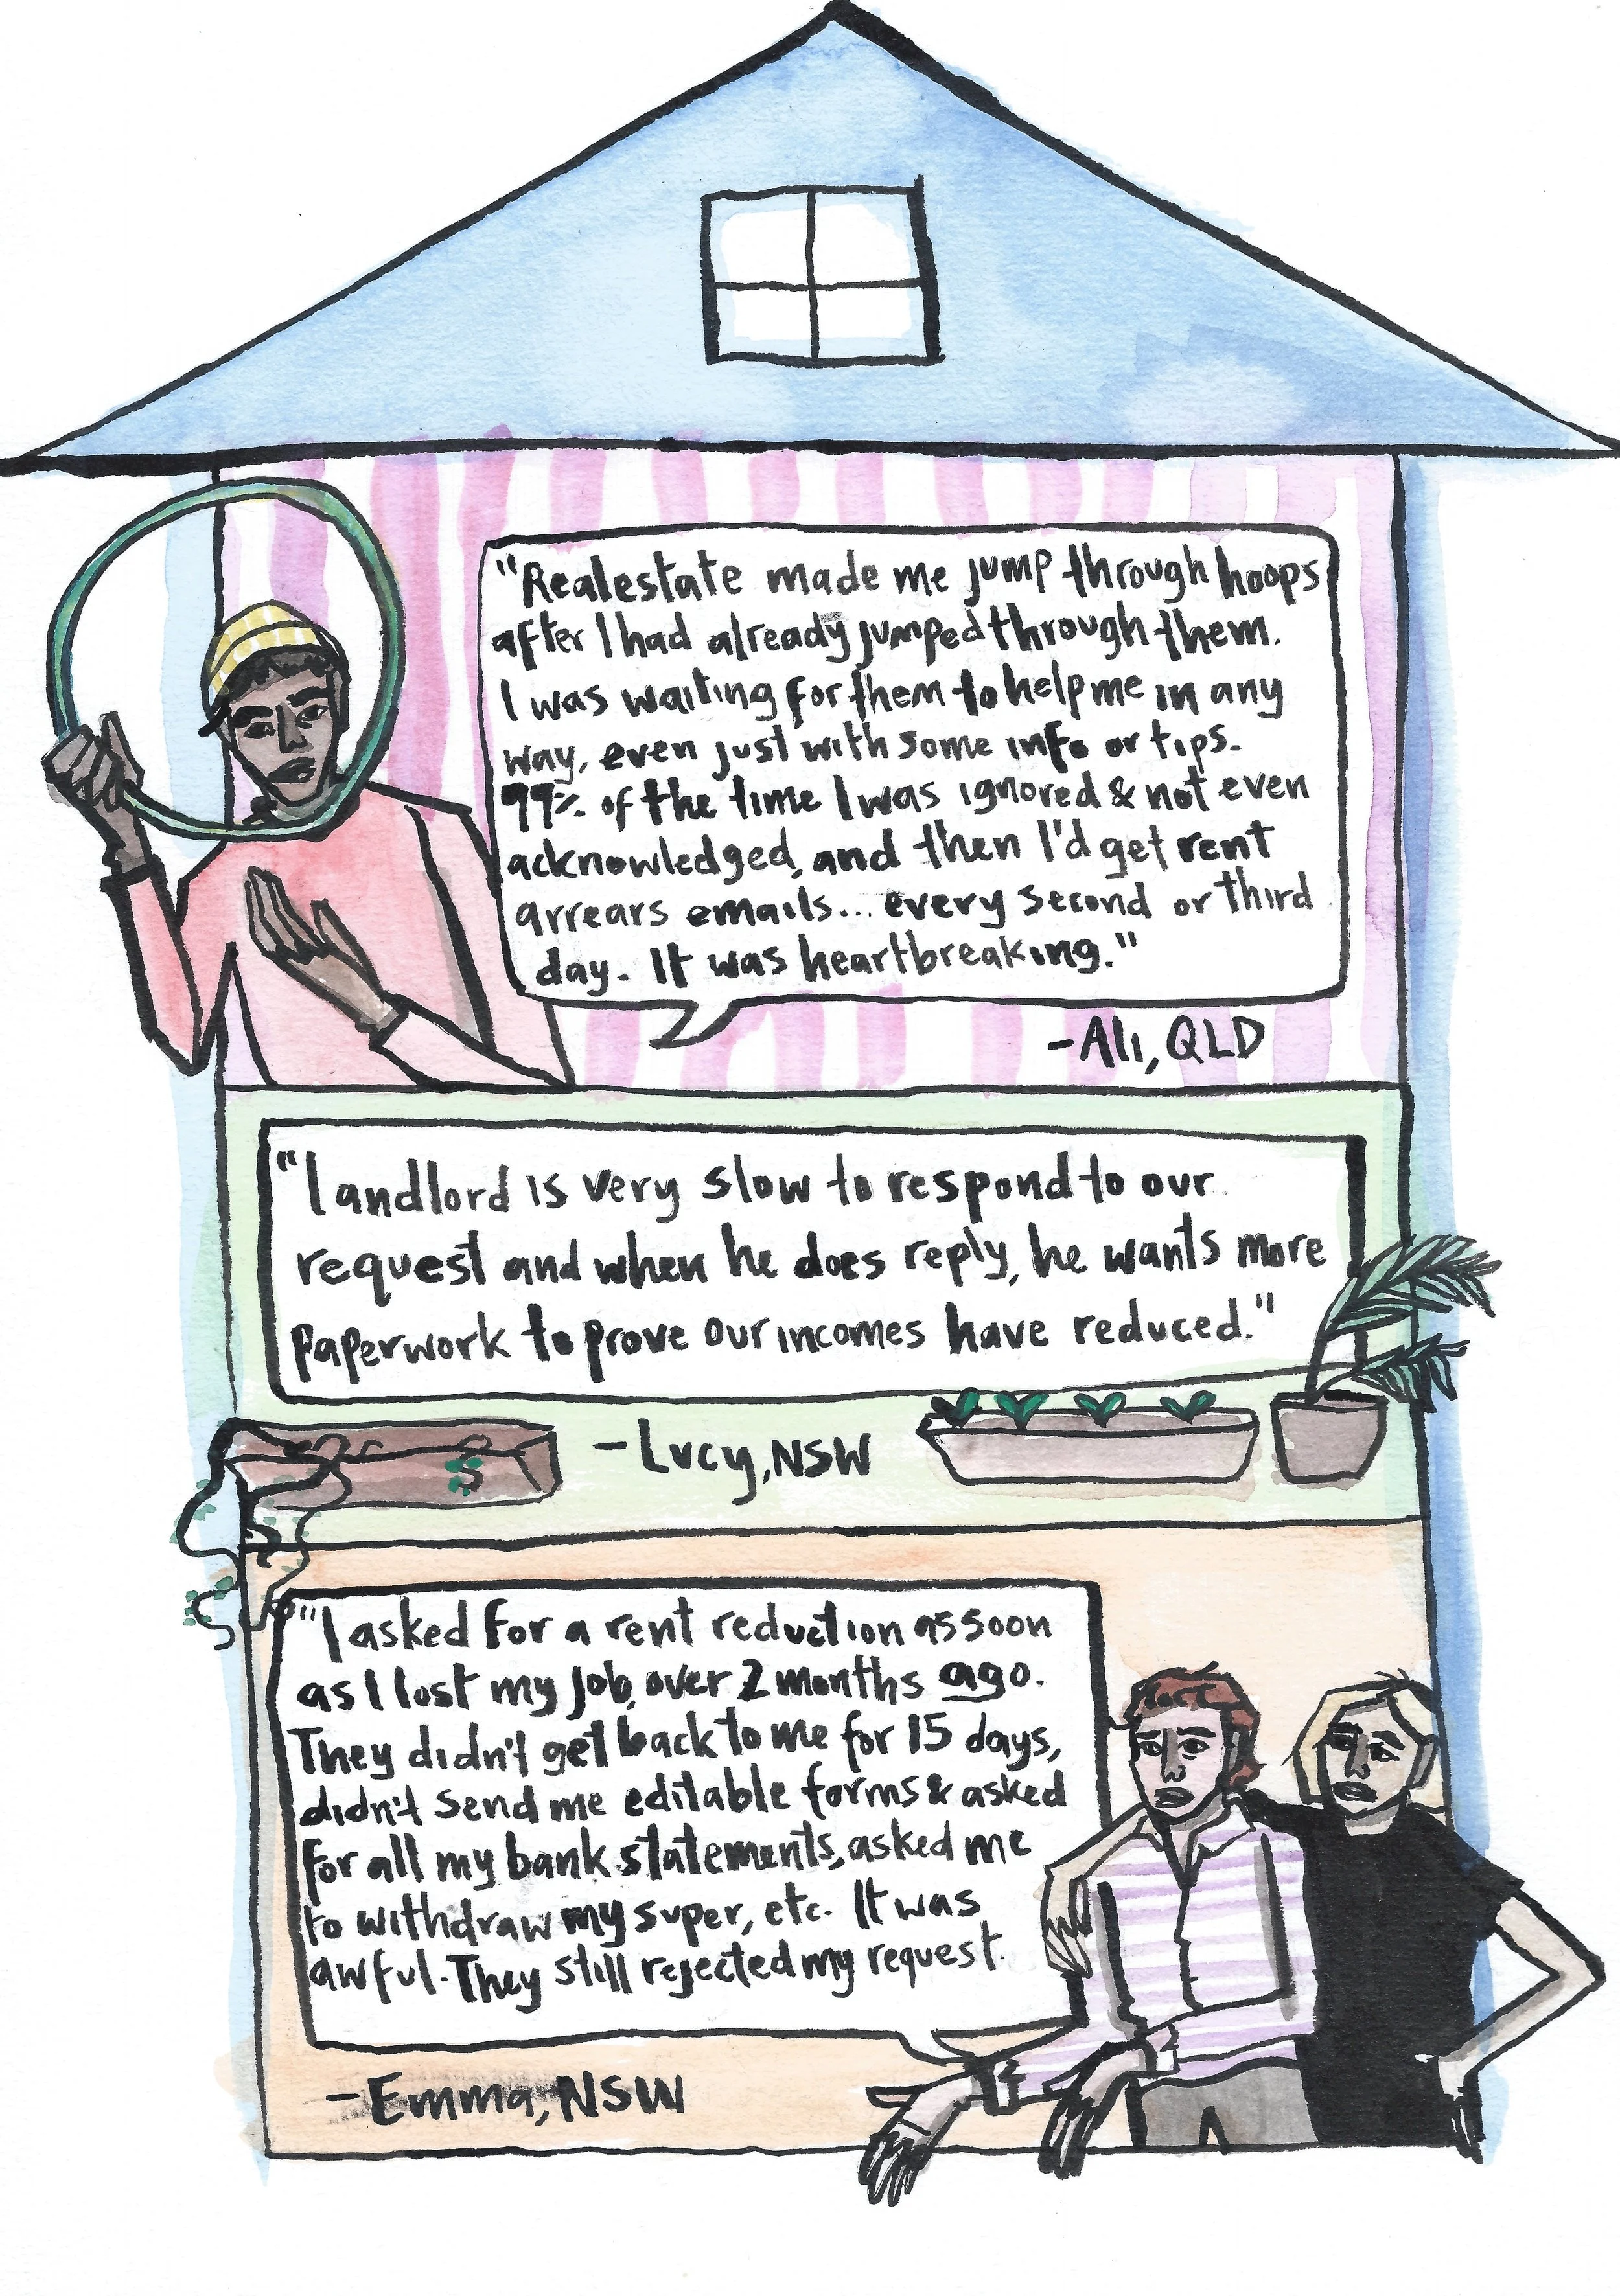 "Realestate made me jump through hoops
after I had already jumped through them.
I was waiting for them to help me in any
way, even just with some info or tips.
99% of the time I was ignored & not even
acknowledged, and then I'd get rent
arrears emails... every second or third
day. It was heartbreaking."
-Ali, QLD
"Landlord is very slow to respond to our
request and when he does reply, he wants more
paperwork to prove our incomes have reduced."
-Lucy, NSW
"I asked for a rent reduction as soon
as I lost my job, over 2 months ago.
They didn't get back to me for 15 days,
didn't send me editable forms & asked
for all my bank statements, asked me
to withdraw my super, etc. It was
awful. They still rejected my request.
-Emma, NSW